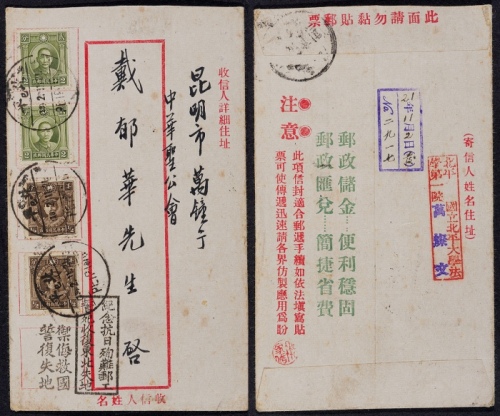 收信人詳細住址
昆明市萬鐘丁
中華聖公會
戴郁華先生啓
收信人姓名
紀念抗日殉難郵工
誓死收復東北失地
禦侮救國
誓復失地
此面請勿黏貼郵票
(寄信人姓名住址)
北平國立北平大學法學第一院
萬燦文
郵政儲金—便利穩固
郵政匯兌—簡捷省費
注意
此項信封適合郵遞手續如依法填寫貼
票可使傳遞迅速請各界仿製應用爲盼